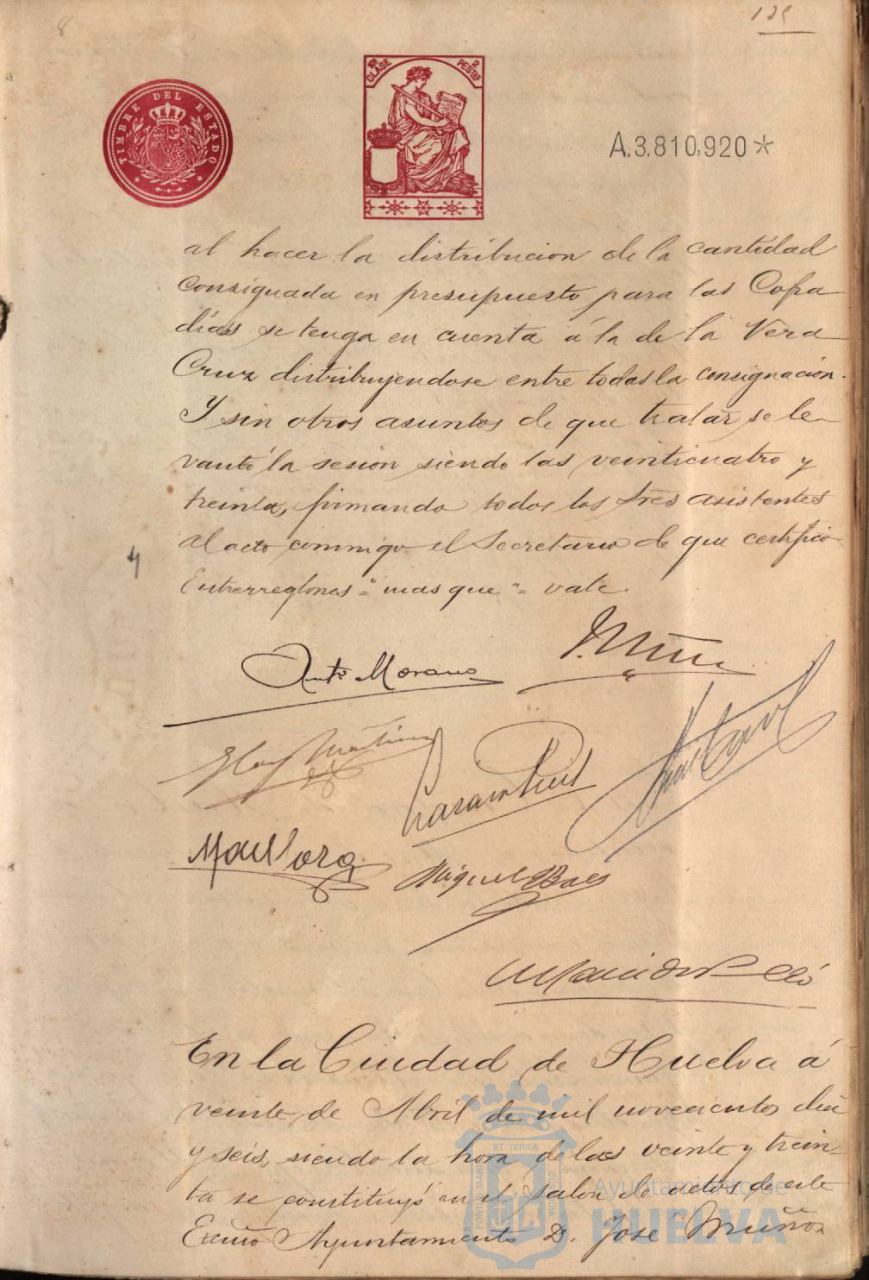 8
129
TIMBRE DEL ESTADO
CLASE
2
PESTAS
A.3.810.920*
al hacer la distribucion de la cantidad
consignada en presupuesto para las Cofra
días se tenga en cuenta á la de la Vera
Cruz distribuyendose entre todas la consignación.
Y sin otros asuntos de que tratar, se le-
vantó la sesión siendo las veinticuatro y
treinta, firmando todos los Sres asistentes
al acto conmigo el Secretario de que certifico
Entrerreglones = "mas que" = vale.
Antº Morano
J. Muñoz
Eloy Martin
Miguel Baes
En la Ciudad de Huelva á
veinte de Abril de mil novecientos diez
y seis, siendo la hora de las veinte y trein-
ta se constituyó en el salon de actos de este
Excmo Ayuntamiento D. José Muñoz
Ayuntamiento de
HUELVA